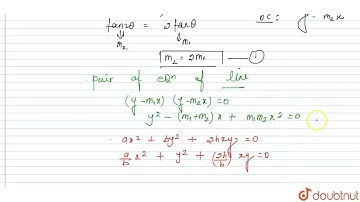 tan2θ = 2tanθ
OC: y - m₂x
↓ ↓
m₂ m₁
m₂ = 2m₁ — ①
pair of eqn of line
(y-m₁x) (y-m₂x) = 0
y² - (m₁+m₂)x + m₁m₂x² = 0
ax² + by² + 2hxy = 0
a/b x² + y² + (2h/b) xy = 0
doubtnut